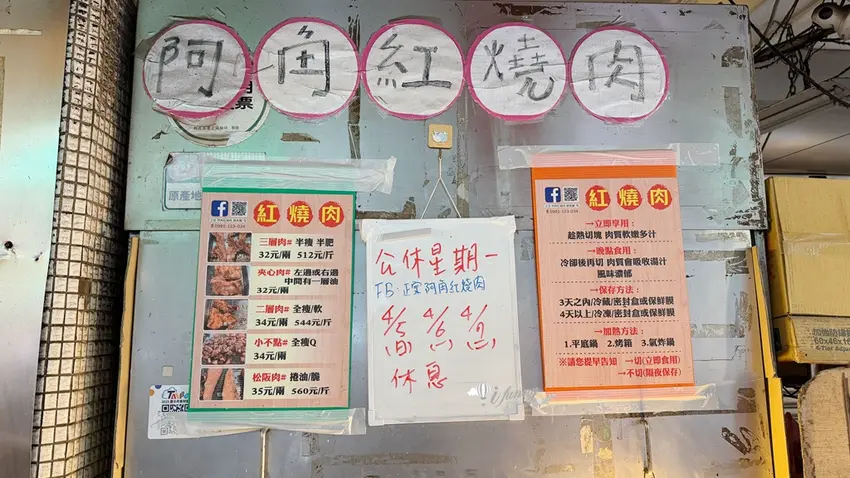 阿角紅燒肉
原產地
紅燒肉
三層肉# 半瘦 半肥
32元/兩 512元/斤
夾心肉# 左邊或右邊
中間有一層油
32元/兩
二層肉# 全瘦/軟
34元/兩 544元/斤
小不點# 全瘦Q
34元/兩
松阪肉# 捲油/脆
35元/兩 560元/斤
公休星期一
FB:正宗阿角紅燒肉
4/5 4/6 4/7
(日) (一) (二)
休息
紅燒肉
→立即享用:
趁熱切塊 肉質軟嫩多汁
→晚點食用:
冷卻後再切 肉質會吸收湯汁
風味濃郁
→保存方法:
3天之內/冷藏/密封盒或保鮮膜
4天以上/冷凍/密封盒或保鮮膜
→加熱方法:
1.平底鍋 2.烤箱 3.氣炸鍋
※請您提早告知 →切(立即食用)
→不切(隔夜保存)